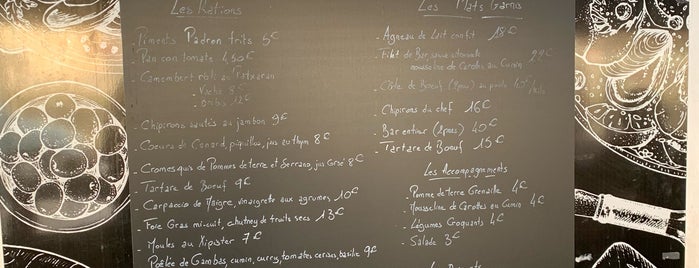 Les Rations
Piments Padron frits 5€
- Pan con tomate 4,50€
- Camembert rôti au
Vache 8€
Brebis 12€
- Chipirons sautés au jambon 9€
- Coeurs de Canard, piquillos, jus au thym 8€
- Cromesquis de Pommes de terre et Serrano, jus Corsé 8€
- Tartare de Boeuf 9€
- Carpaccio de Maigre, vinaigrette aux agrumes 10€
- Foie Gras mi-cuit, chutney de fruits secs 13€
- Moules au Xipister 7€
Poêlée de Gambas, cumin, curry, tomates cerises, basilic 9€
Les Plats Garnis
- Agneau de Lait confit 18€
- Filet de Bar, sauce
mousseline de Carottes au Cumin 22€
- Côte de Boeuf (2pers) au poids 40€/kilo
- Chipirons du chef 16€
- Bar entier (2pers) 40€
- Tartare de Boeuf 15€
Les Accompagnements
- Pomme de terre Grenaille 4€
- Mousseline de Carottes au Cumin 4€
- Légumes Croquants 4€
- Salade 3€